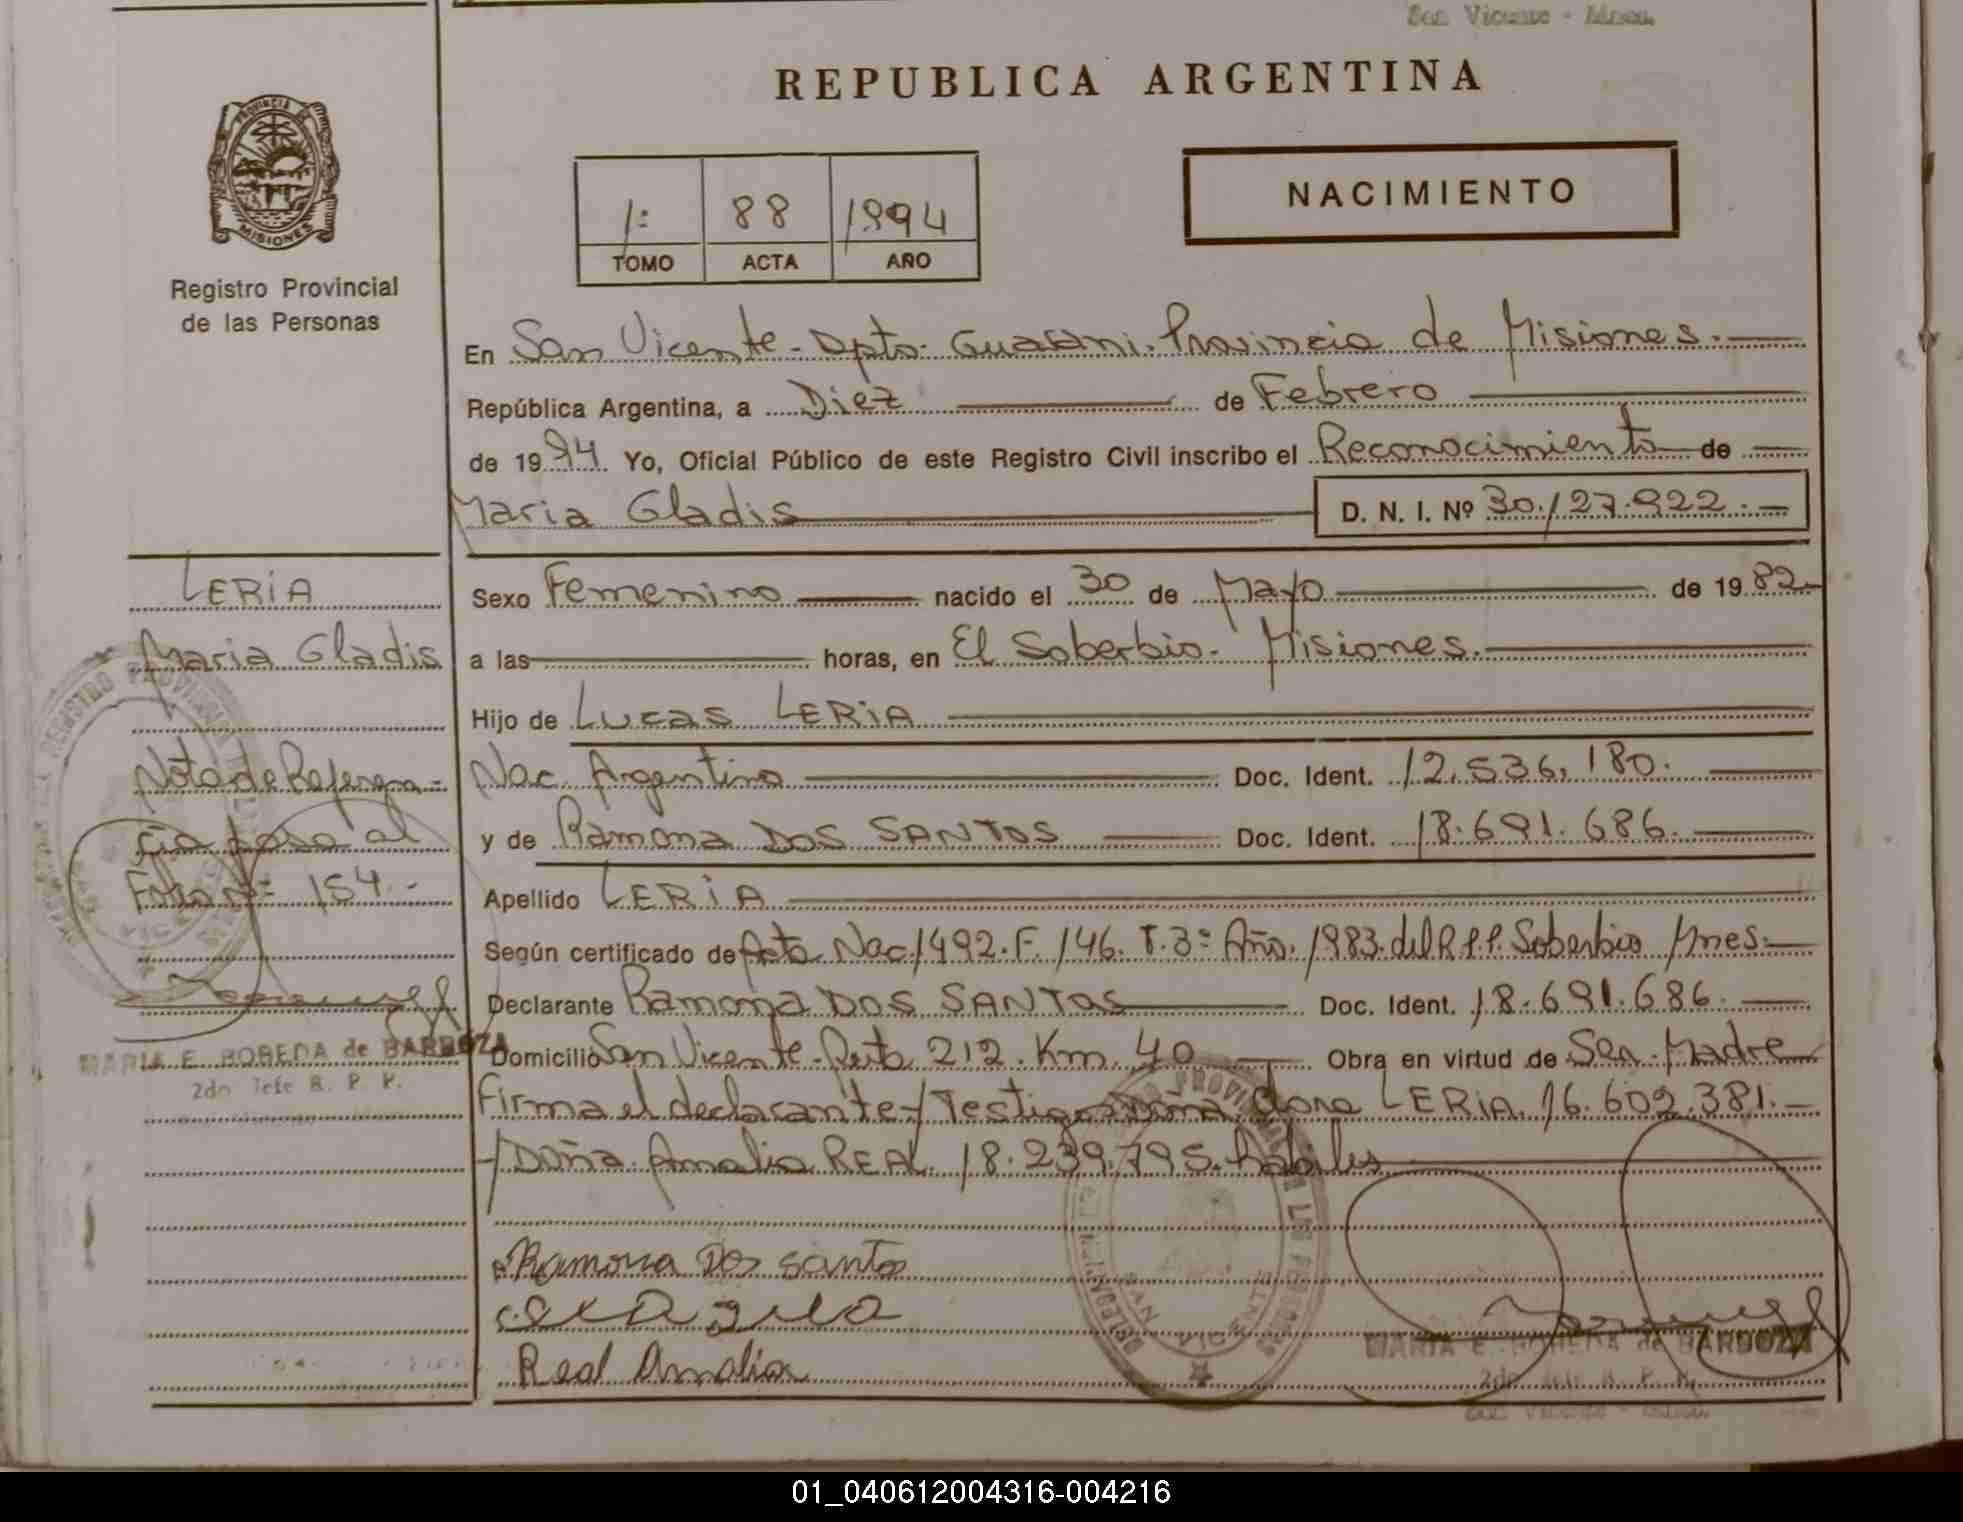 San Vicente - Mnes.
REPUBLICA ARGENTINA
PROVINCIA DE
MISIONES
Registro Provincial
de las Personas
1º 88 1994
TOMO ACTA AÑO
NACIMIENTO
En San Vicente - Dpto. Guarani. Provincia de Misiones.
República Argentina, a Diez de Febrero
de 1994. Yo, Oficial Público de este Registro Civil inscribo el Reconocimiento de
Maria Gladis D. N. I. Nº 30.127.922.
LERIA
Maria Gladis
Nota de Referen=
cia pasa al
Folio nº 154.-
MARIA E. BOBEDA de BARBOZA
2do Jefe R. P. P.
Sexo Femenino nacido el 30 de Mayo de 1982.
a las horas, en El Soberbio. Misiones.
Hijo de Lucas LERIA
Nac. Argentina Doc. Ident. 12.536.180.
y de Ramona DOS SANTOS Doc. Ident. 18.691.686.
Apellido LERIA
Según certificado de Acta Nac. 1492. F. 146. T. 3º Año. 1983. del R.P.P. Soberbio Mnes.
Declarante Ramona DOS SANTOS Doc. Ident. 18.691.686.
Domicilio San Vicente - Ruta 212. Km. 40 Obra en virtud de Ser. Madre
Firma el declarante / Testigos Doña Clara LERIA. 16.602.381.
/ Doña Amalia REAL. 18.239.795. hábiles
Ramona Dos santos
Real Amalia
MARIA E. BOBEDA de BARBOZA
2do Jefe R. P. P.
San Vicente - Mnes.
01_040612004316-004216